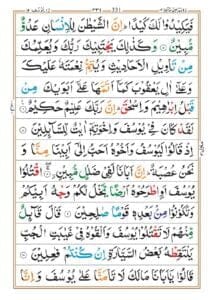 فَيَكِيْدُوْا لَكَ كَيْدًا اِنَّ الشَّيْطٰنَ لِلْاِنْسَانِ عَدُوٌّ
مُّبِيْنٌ وَكَذٰلِكَ يَجْتَبِيْكَ رَبُّكَ وَيُعَلِّمُكَ
مِنْ تَاْوِيْلِ الْاَحَادِيْثِ وَيُتِمُّ نِعْمَتَهٗ عَلَيْكَ
وَعَلٰٓى اٰلِ يَعْقُوْبَ كَمَآ اَتَمَّهَا عَلٰٓى اَبَوَيْكَ
مِنْ قَبْلُ اِبْرٰهِيْمَ وَاِسْحٰقَ اِنَّ رَبَّكَ عَلِيْمٌ حَكِيْمٌ
لَقَدْ كَانَ فِيْ يُوْسُفَ وَاِخْوَتِهٖٓ اٰيٰتٌ لِّلسَّآئِلِيْنَ
اِذْ قَالُوْا لَيُوْسُفُ وَاَخُوْهُ اَحَبُّ اِلٰٓى اَبِيْنَا مِنَّا وَ
نَحْنُ عُصْبَةٌ اِنَّ اَبَانَا لَفِيْ ضَلٰلٍ مُّبِيْنٍ اقْتُلُوْا
يُوْسُفَ اَوِ اطْرَحُوْهُ اَرْضًا يَّخْلُ لَكُمْ وَجْهُ اَبِيْكُمْ
وَتَكُوْنُوْا مِنْۢ بَعْدِهٖ قَوْمًا صٰلِحِيْنَ قَالَ قَآئِلٌ
مِّنْهُمْ لَا تَقْتُلُوْا يُوْسُفَ وَاَلْقُوْهُ فِيْ غَيٰبَتِ الْجُبِّ
يَلْتَقِطْهُ بَعْضُ السَّيَّارَةِ اِنْ كُنْتُمْ فٰعِلِيْنَ
قَالُوْا يٰٓاَبَانَا مَا لَكَ لَا تَاْمَنَّا عَلٰى يُوْسُفَ وَاِنَّا